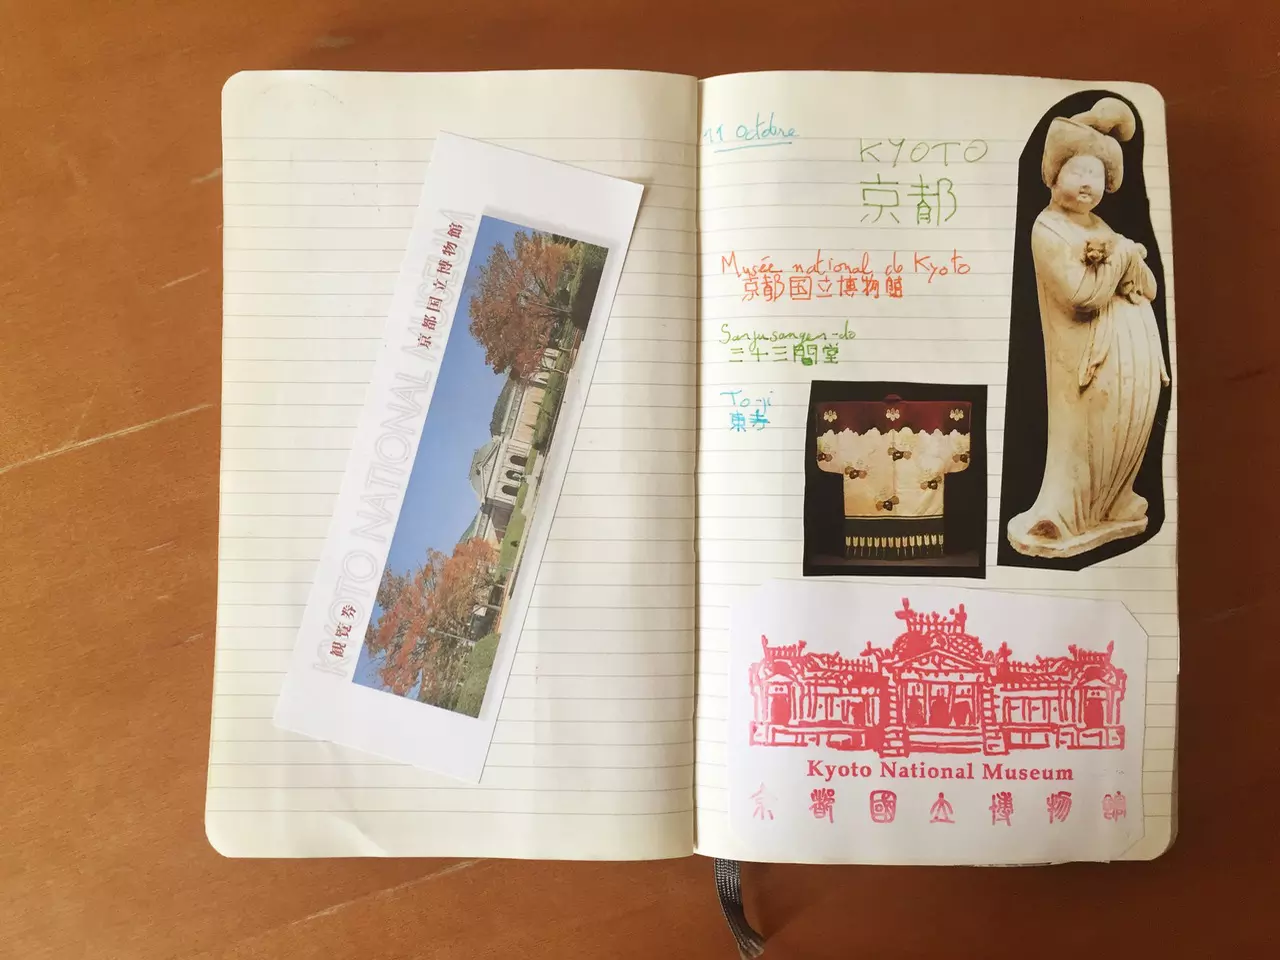 京都国立博物館
KYOTO NATIONAL MUSEUM
観覧券
11 Octobre
KYOTO
京都
Musée national de Kyoto
京都国立博物館
Sanjusangen-do
三十三間堂
To-ji
東寺
Kyoto National Museum
京都國立博物館